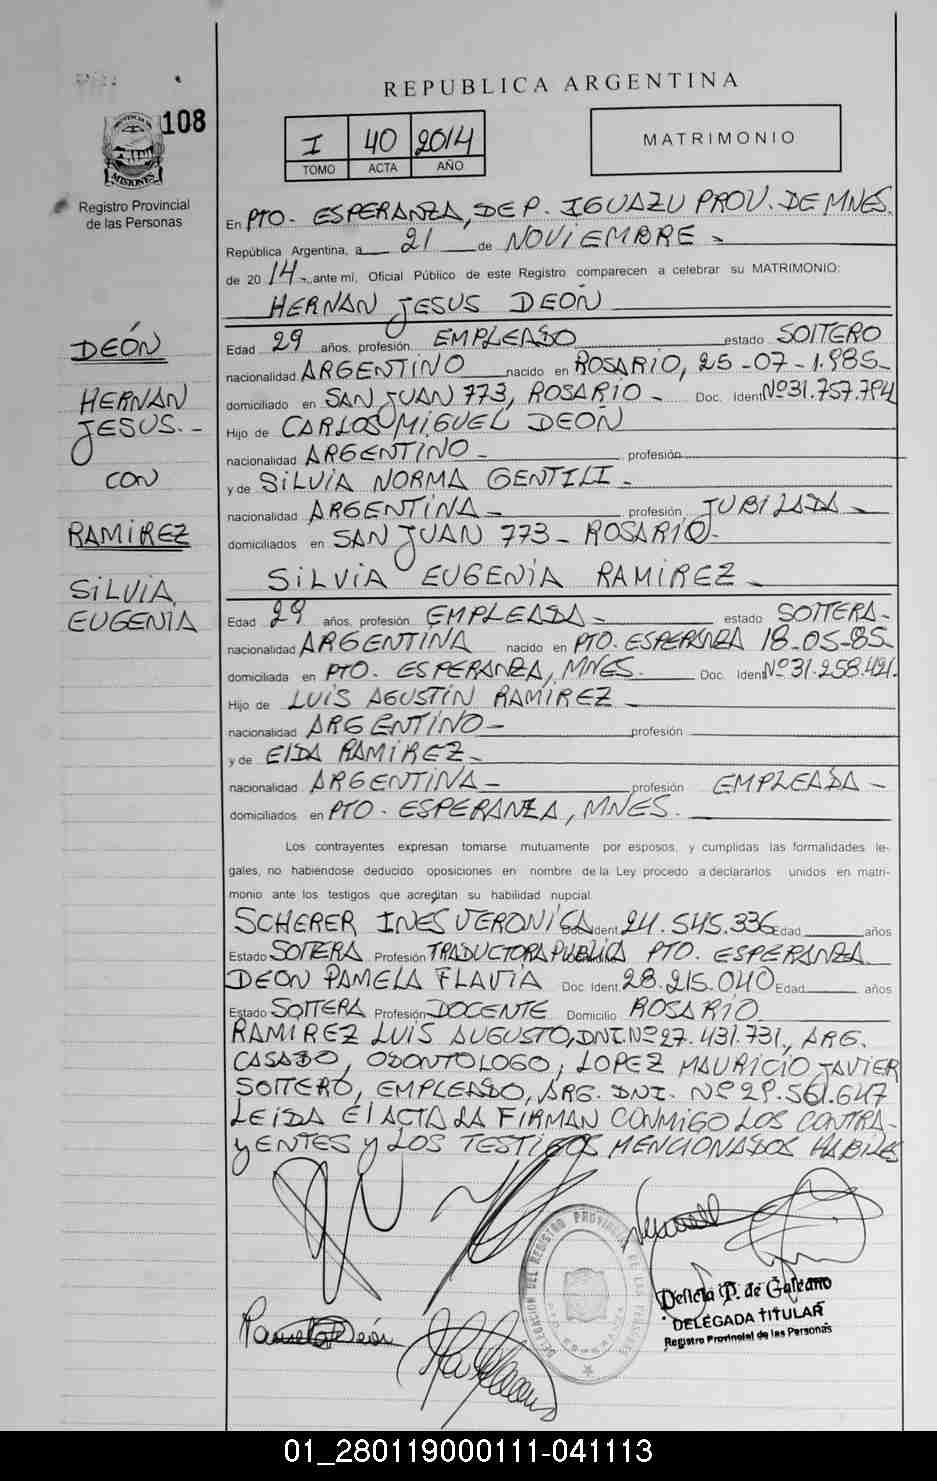 REPUBLICA ARGENTINA
108
PROVINCIA DE
MISIONES
Registro Provincial
de las Personas
I 40 2014
TOMO ACTA AÑO
MATRIMONIO
En PTO. ESPERANZA, DEP. IGUAZU PROV. DE MNES.
República Argentina, a 21 de NOVIEMBRE -
de 20 14 -, ante mi, Oficial Público de este Registro comparecen a celebrar su MATRIMONIO:
HERNAN JESUS DEÓN
DEÓN
HERNAN
JESUS.-
CON
RAMIREZ
SILVIA
EUGENIA
Edad 29 años, profesión EMPLEADO estado SOLTERO
nacionalidad ARGENTINO nacido en ROSARIO, 25-07-1.985-
domiciliado en SAN JUAN 773, ROSARIO - Doc. Ident Nº 31.757.794
Hijo de CARLOS MIGUEL DEÓN
nacionalidad ARGENTINO - profesión
y de SILVIA NORMA GENTILI -
nacionalidad ARGENTINA - profesión JUBILADA -
domiciliados en SAN JUAN 773 - ROSARIO -
SILVIA EUGENIA RAMIREZ -
Edad 29 años, profesión EMPLEADA - estado SOLTERA -
nacionalidad ARGENTINA nacido en PTO. ESPERANZA 18-05-85-
domiciliada en PTO. ESPERANZA, MNES. Doc. Ident Nº 31.258.421.
Hijo de LUIS AGUSTIN RAMIREZ -
nacionalidad ARGENTINO - profesión
y de ELDA RAMIREZ -
nacionalidad ARGENTINA - profesión EMPLEADA -
domiciliados en PTO. ESPERANZA, MNES.
Los contrayentes expresan tomarse mutuamente por esposos, y cumplidas las formalidades le-
gales, no habiendose deducido oposiciones en nombre de la Ley procedo a declararlos unidos en matri-
monio ante los testigos que acreditan su habilidad nupcial.
SCHERER INES VERONICA Doc. Ident. 24.545.336 Edad años
Estado SOLTERA Profesión TRADUCTORA PUBLICA PTO. ESPERANZA
DEON PAMELA FLAVIA Doc. Ident. 28.215.040 Edad años
Estado SOLTERA Profesión DOCENTE Domicilio ROSARIO
RAMIREZ LUIS AUGUSTO, DNI. Nº 27.431.731, ARG.
CASADO, ODONTOLOGO, LOPEZ MAURICIO JAVIER
SOLTERO, EMPLEADO, ARG. DNI. Nº 29.561.647
LEIDA EL ACTA LA FIRMAN CONMIGO LOS CONTRA-
YENTES Y LOS TESTIGOS MENCIONADOS HABILES
DELEGACION DEL REGISTRO PROVINCIAL DE LAS PERSONAS
P. de Galeano
DELEGADA TITULAR
Registro Provincial de las Personas
Pamela Deón
01_280119000111-041113